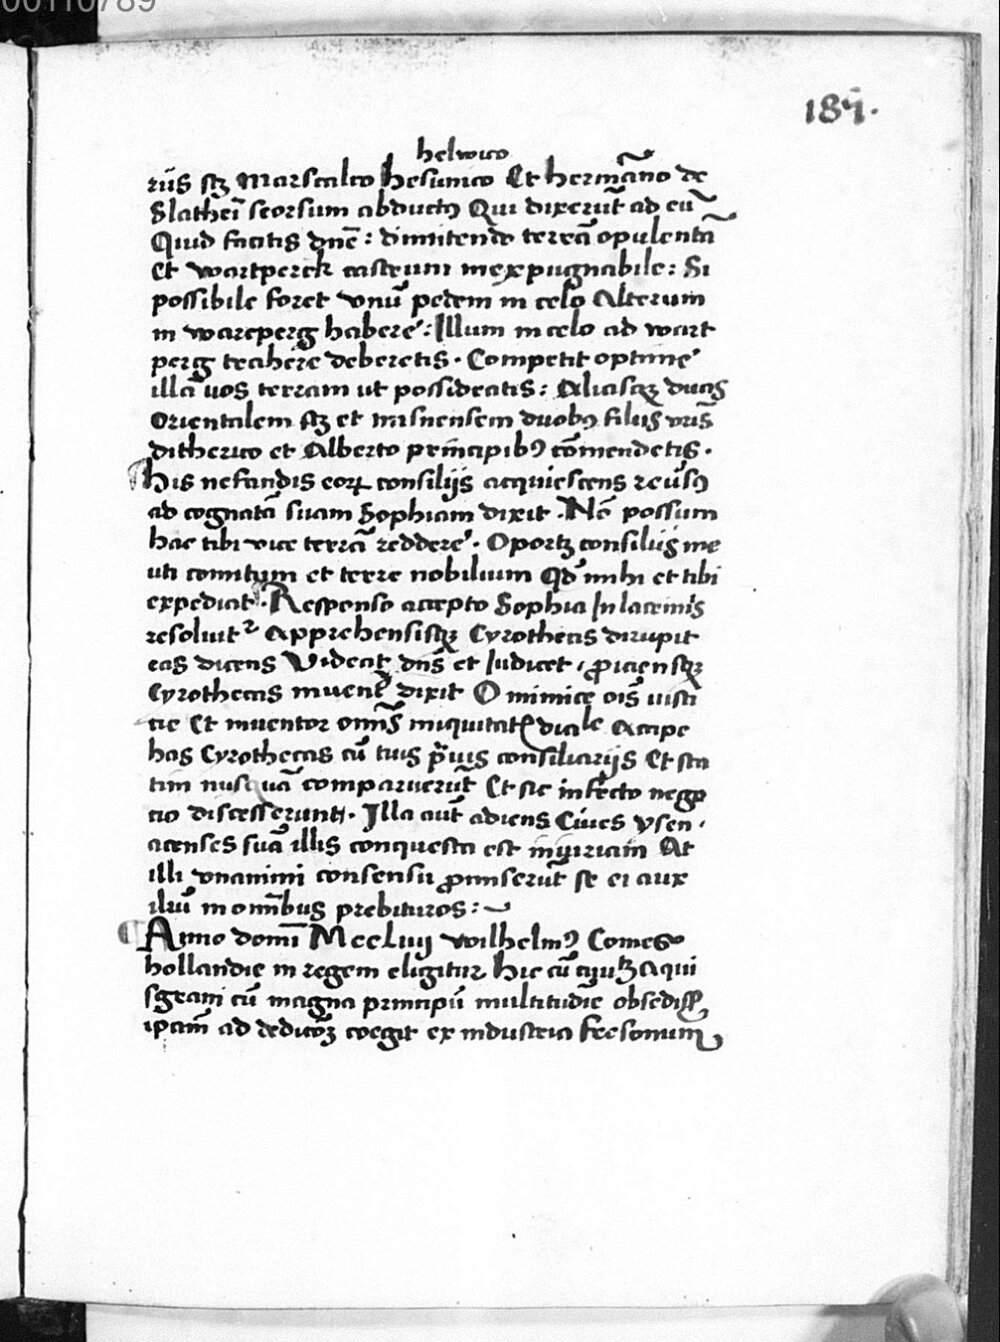 00110789
185.
helwico
rijs scz Marscalco Hesunico Et hermãno de
Slatheĩ seorsum abductꝯ Qui dixerũt ad eũ
Quid facitis dñe : dimitendo terrã opulentã
Et wartperck castrum inexpugnabile : Si
possibile foret vnũ pedem in celo Alterum
in wartperg habere : Illum in celo ad wart
perg trahere deberetis . Competit optime
illã uos terram ut possideatis : Aliasqꝫ duas
Orientalem scz et misnensem duobꝯ filijs vr̃is
ditherico et Alberto principibꝯ cõmendetis .
his nefandis eoꝝ consilijs acquiescens reũsꝯ
ad cognatã suam Sophiam dixit . Nõ possum
hac tibi vice terrã reddere . Oportꝫ consilijs me
uti comitum et terre nobilium Qd̃ mihi et tibi
expediat . Responso accepto Sophia In lacrimis
resoluitr Apprehensisqꝫ Cyrothecis dirupit
eas dicens Videat dñs et Iudicet , ꝓiciensqꝫ
Cyrothecas dixit O inimice oĩs iusti
cie Et inuentor omĩs iniquitatis diale Accipe
has Cyrothecas cũ tuis consiliarijs Et sta
tim nusquã comparuerũt Et sic infecto nego
cio discesserunt . Illa aũt adiens Ciues ysen .
acenses suã illis conquesta est iniuriam At
illi vnanimi consensu ꝓmiserũt se ei aux
iliũ in om̃ibus prebituros :
Anno domĩ Mccliiij wilhelmꝯ Comes
hollandie in regem eligitur Hic cũ Aqui
sgrani cũ magna principũ multitudĩe
ipam̃ ad dedicõꝫ coegit ex industria fresonum